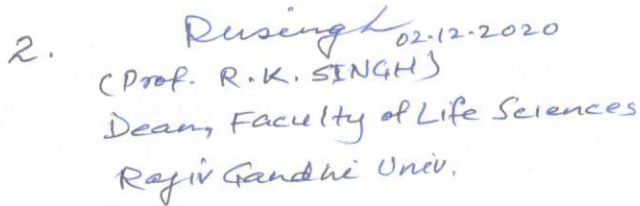 2. Rksingh 02.12.2020
(Prof. R.K. SINGH)
Dean, Faculty of Life Sciences
Rajiv Gandhi Univ.